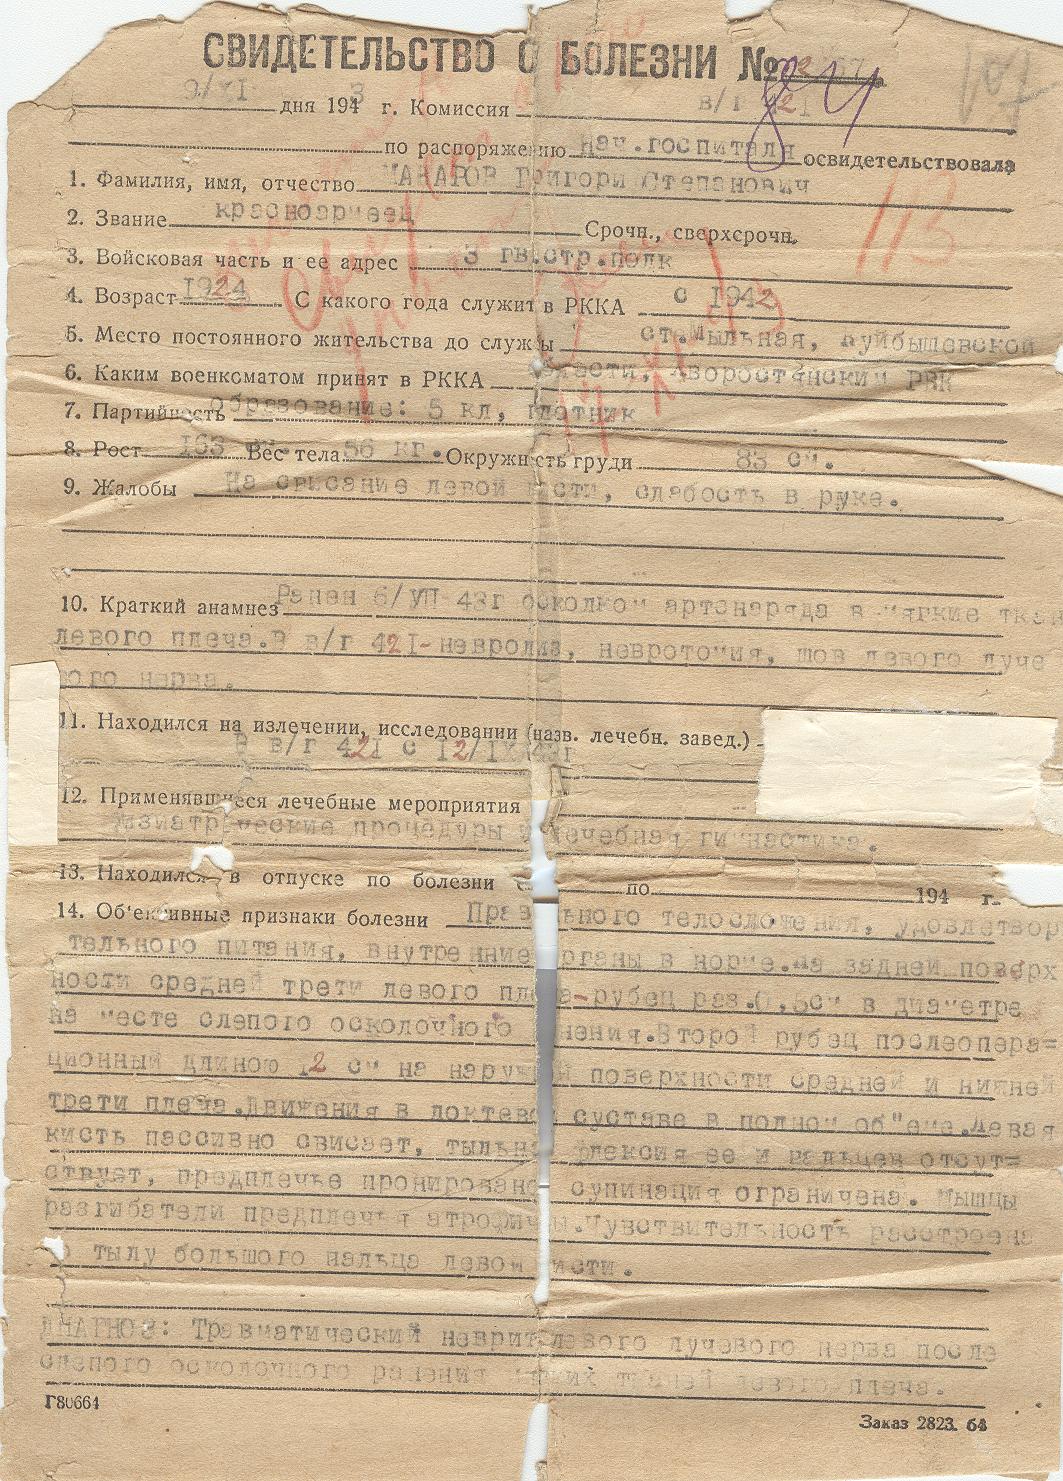 СВИДЕТЕЛЬСТВО О БОЛЕЗНИ №
9/XI дня 1943 г. Комиссия в/г 421
по распоряжению нач.госпиталя освидетельствовала
1. Фамилия, имя, отчество МАКАРОВ Григори Степанович
2. Звание красноармеец Срочн., сверхсрочн.
3. Войсковая часть и ее адрес 3 гв.стр.полк
4. Возраст 1924 С какого года служит в РККА с 1942
5. Место постоянного жительства до службы ст.Мыльная, Куйбышевской
6. Каким военкоматом принят в РККА области. Хворостянский РВК
7. Партийность образование: 5 кл, плотник
8. Рост 163 Вес тела 56 кг. Окружность груди 83 см.
9. Жалобы На свисание левой кисти, слабость в руке.
10. Краткий анамнез Ранен 6/УП-43г осколком артснаряда в мягкие ткан
левого плеча.В в/г 421-невролиз, невротомия, шов левого луче
вого нерва.
11. Находился на излечении, исследовании (назв. лечебн. завед.)
В в/г 421 с 12/IX 43г
12. Применявшиеся лечебные мероприятия
Физиатрические процедуры и лечебная гимнастика.
13. Находился в отпуске по болезни с по 194 г.
14. Об'ективные признаки болезни Правильного телосложения, удовлетвор
тельного питания, внутренние органы в норме.На задней поверх
ности средней трети левого плеча-рубец раз.0,5см в диаметре
на месте слепого осколочного ранения.Второй рубец послеопера=
ционный длиною 12 см на наружной поверхности средней и нижней
трети плеча.Движения в локтевом суставе в полном об"еме.Левая
кисть пассивно свисает, тыльная флексия ее и пальцев отсут=
ствует, предплечье пронировано, супинация ограничена. Мышцы
разгибатели предплечья атрофичны.Чувствительность расстроена
по тылу большого пальца левой кисти.
ДИАГНОЗ: Травматический неврит левого лучевого нерва после
слепого осколочного ранения мягких тканей левого плеча.
Г80664
Заказ 2823. 64
113